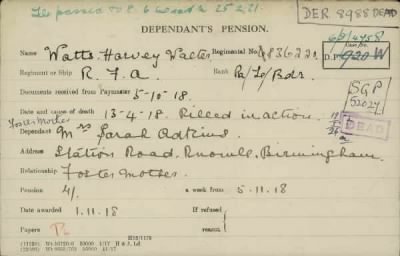 DER. 8988 DEAD
DEPENDANT'S PENSION.
6D/4758
Case No.
D.P. 920 W
Name Watts. Harvey Walter Regimental No. 836220
Regiment or Ship R. F. A. Rank Pa/Le/Bdr.
Documents received from Paymaster 5-10-18.
SGP
52027
Date and cause of death 13-4-18. Killed in action.
Foster Mother
Dependant Mrs Sarah Adkins.
DEAD
Address Station Road, Knowle, Birmingham.
Relationship Foster Mother.
Pension 4/. a week from 5-11-18
Date awarded 1.11.18 If refused
Papers reason